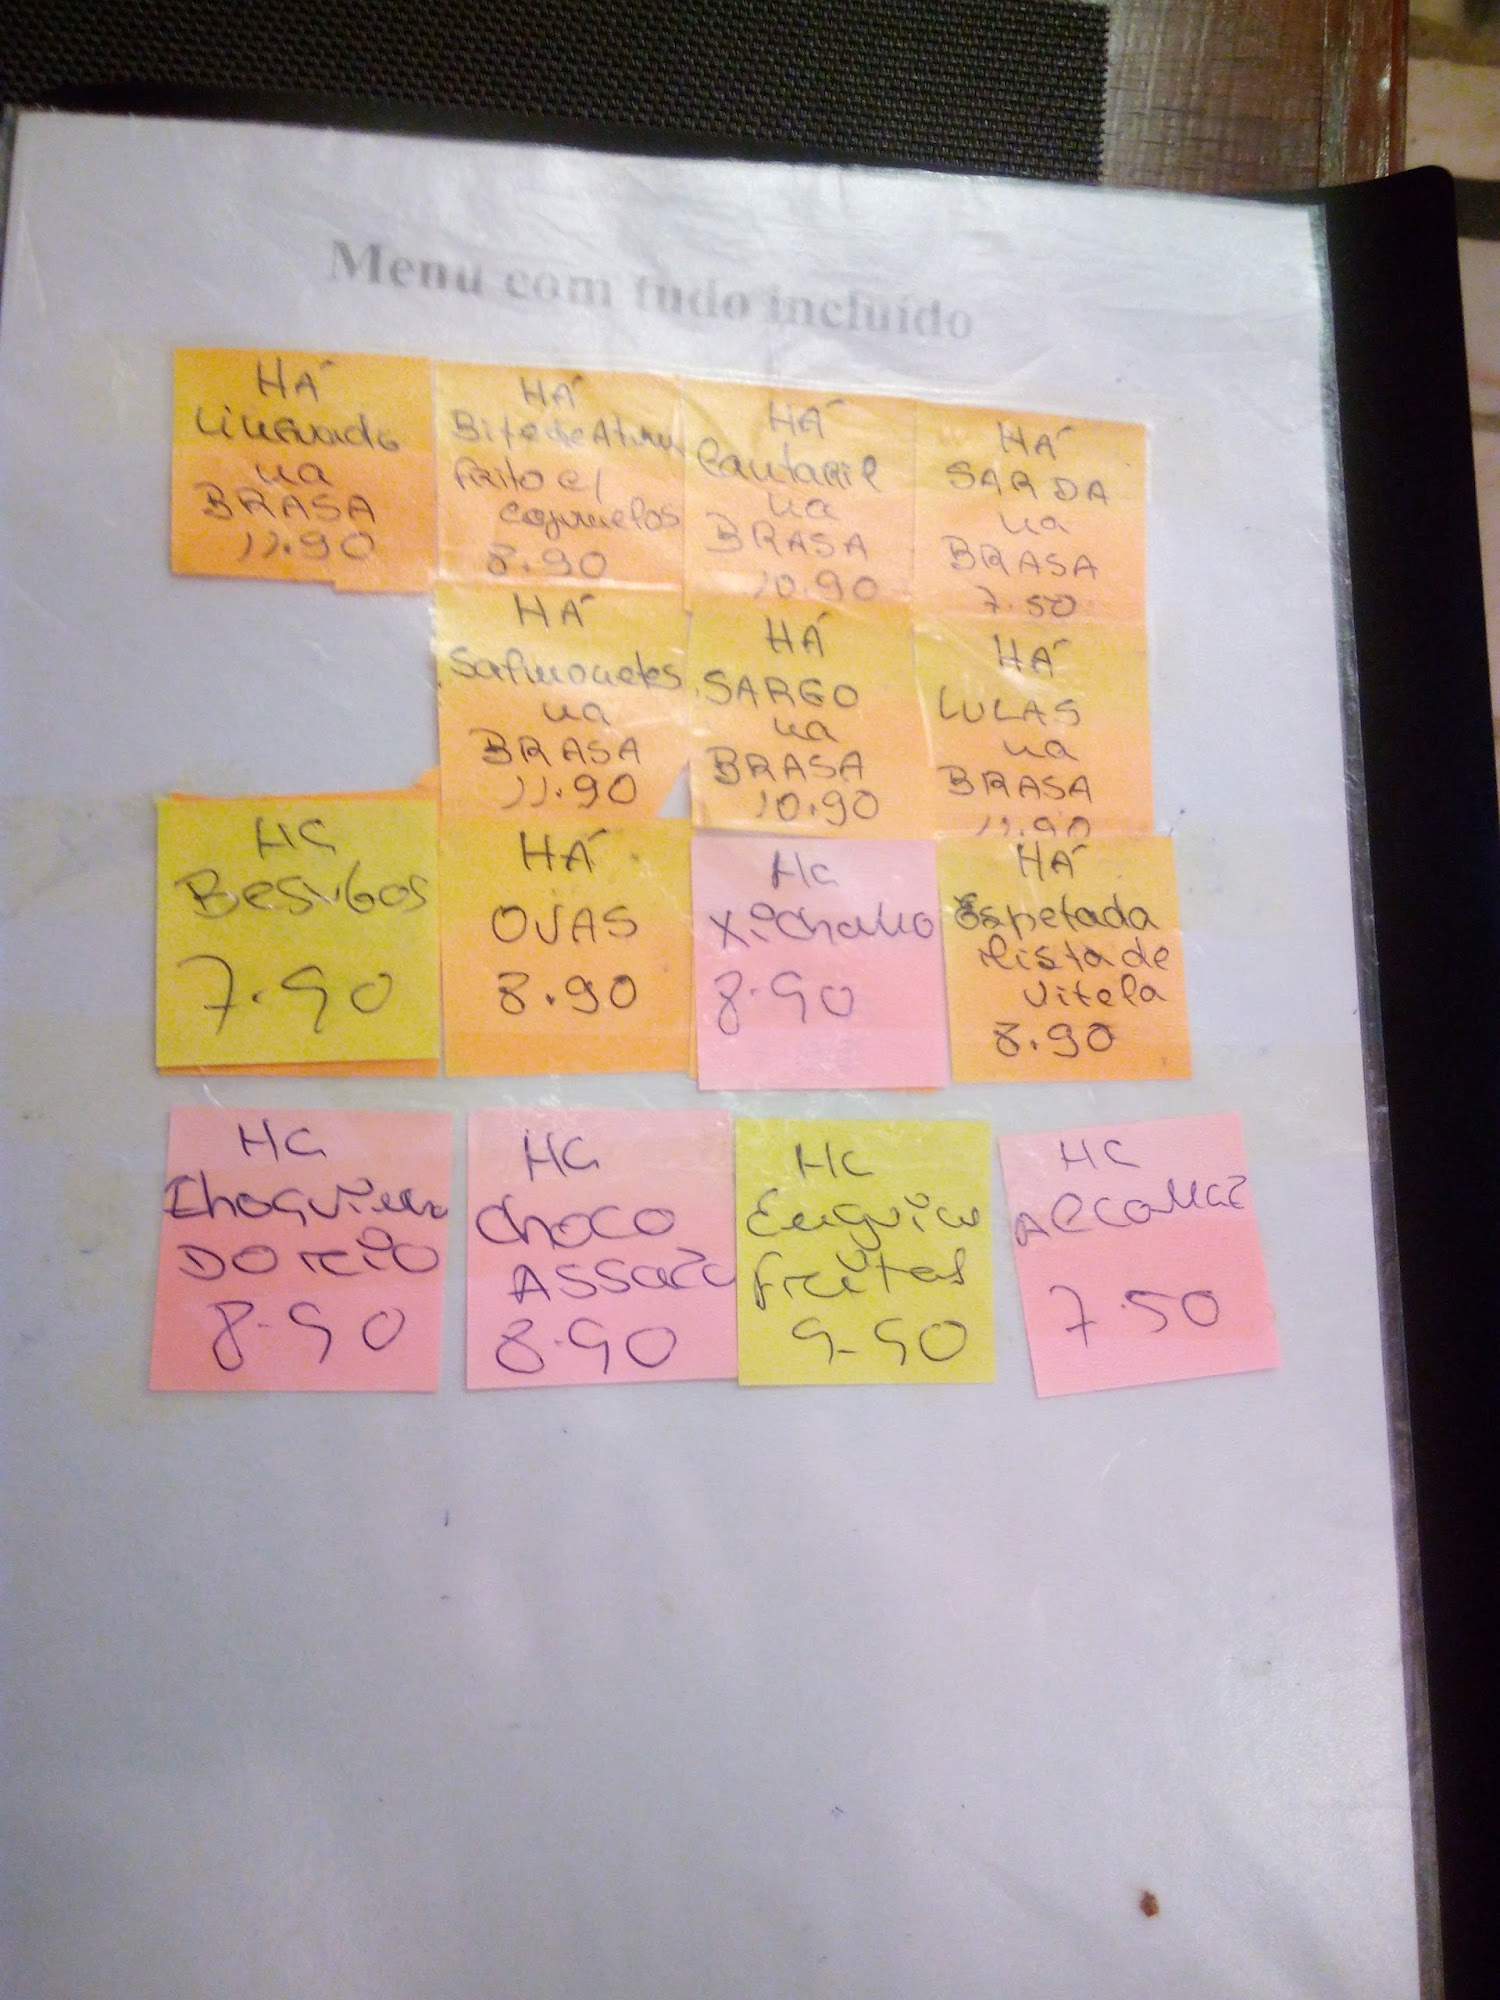 Menu com tudo incluído
HÁ
Linguado
na
BRASA
11.90
HÁ
Bife de Atum
frito c/
cogumelos
8.90
HÁ
Cantaril
na
BRASA
10.90
HÁ
SARDA
na
BRASA
7.50
HÁ
Salmonetes
na
BRASA
11.90
HÁ
SARGO
na
BRASA
10.90
HÁ
LULAS
na
BRASA
11.90
HÁ
Besugos
7.90
HÁ
OVAS
8.90
HÁ
8.90
HÁ
Espetada
Mista de
Vitela
8.90
HÁ
8.90
HÁ
Choco
Assado
8.90
HÁ
Enguias
Fritas
9.90
HÁ
7.50